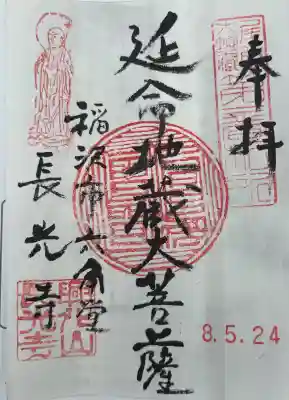 奉拝
延命地蔵大菩薩
稲沢市六角堂
長光寺
8.5.24